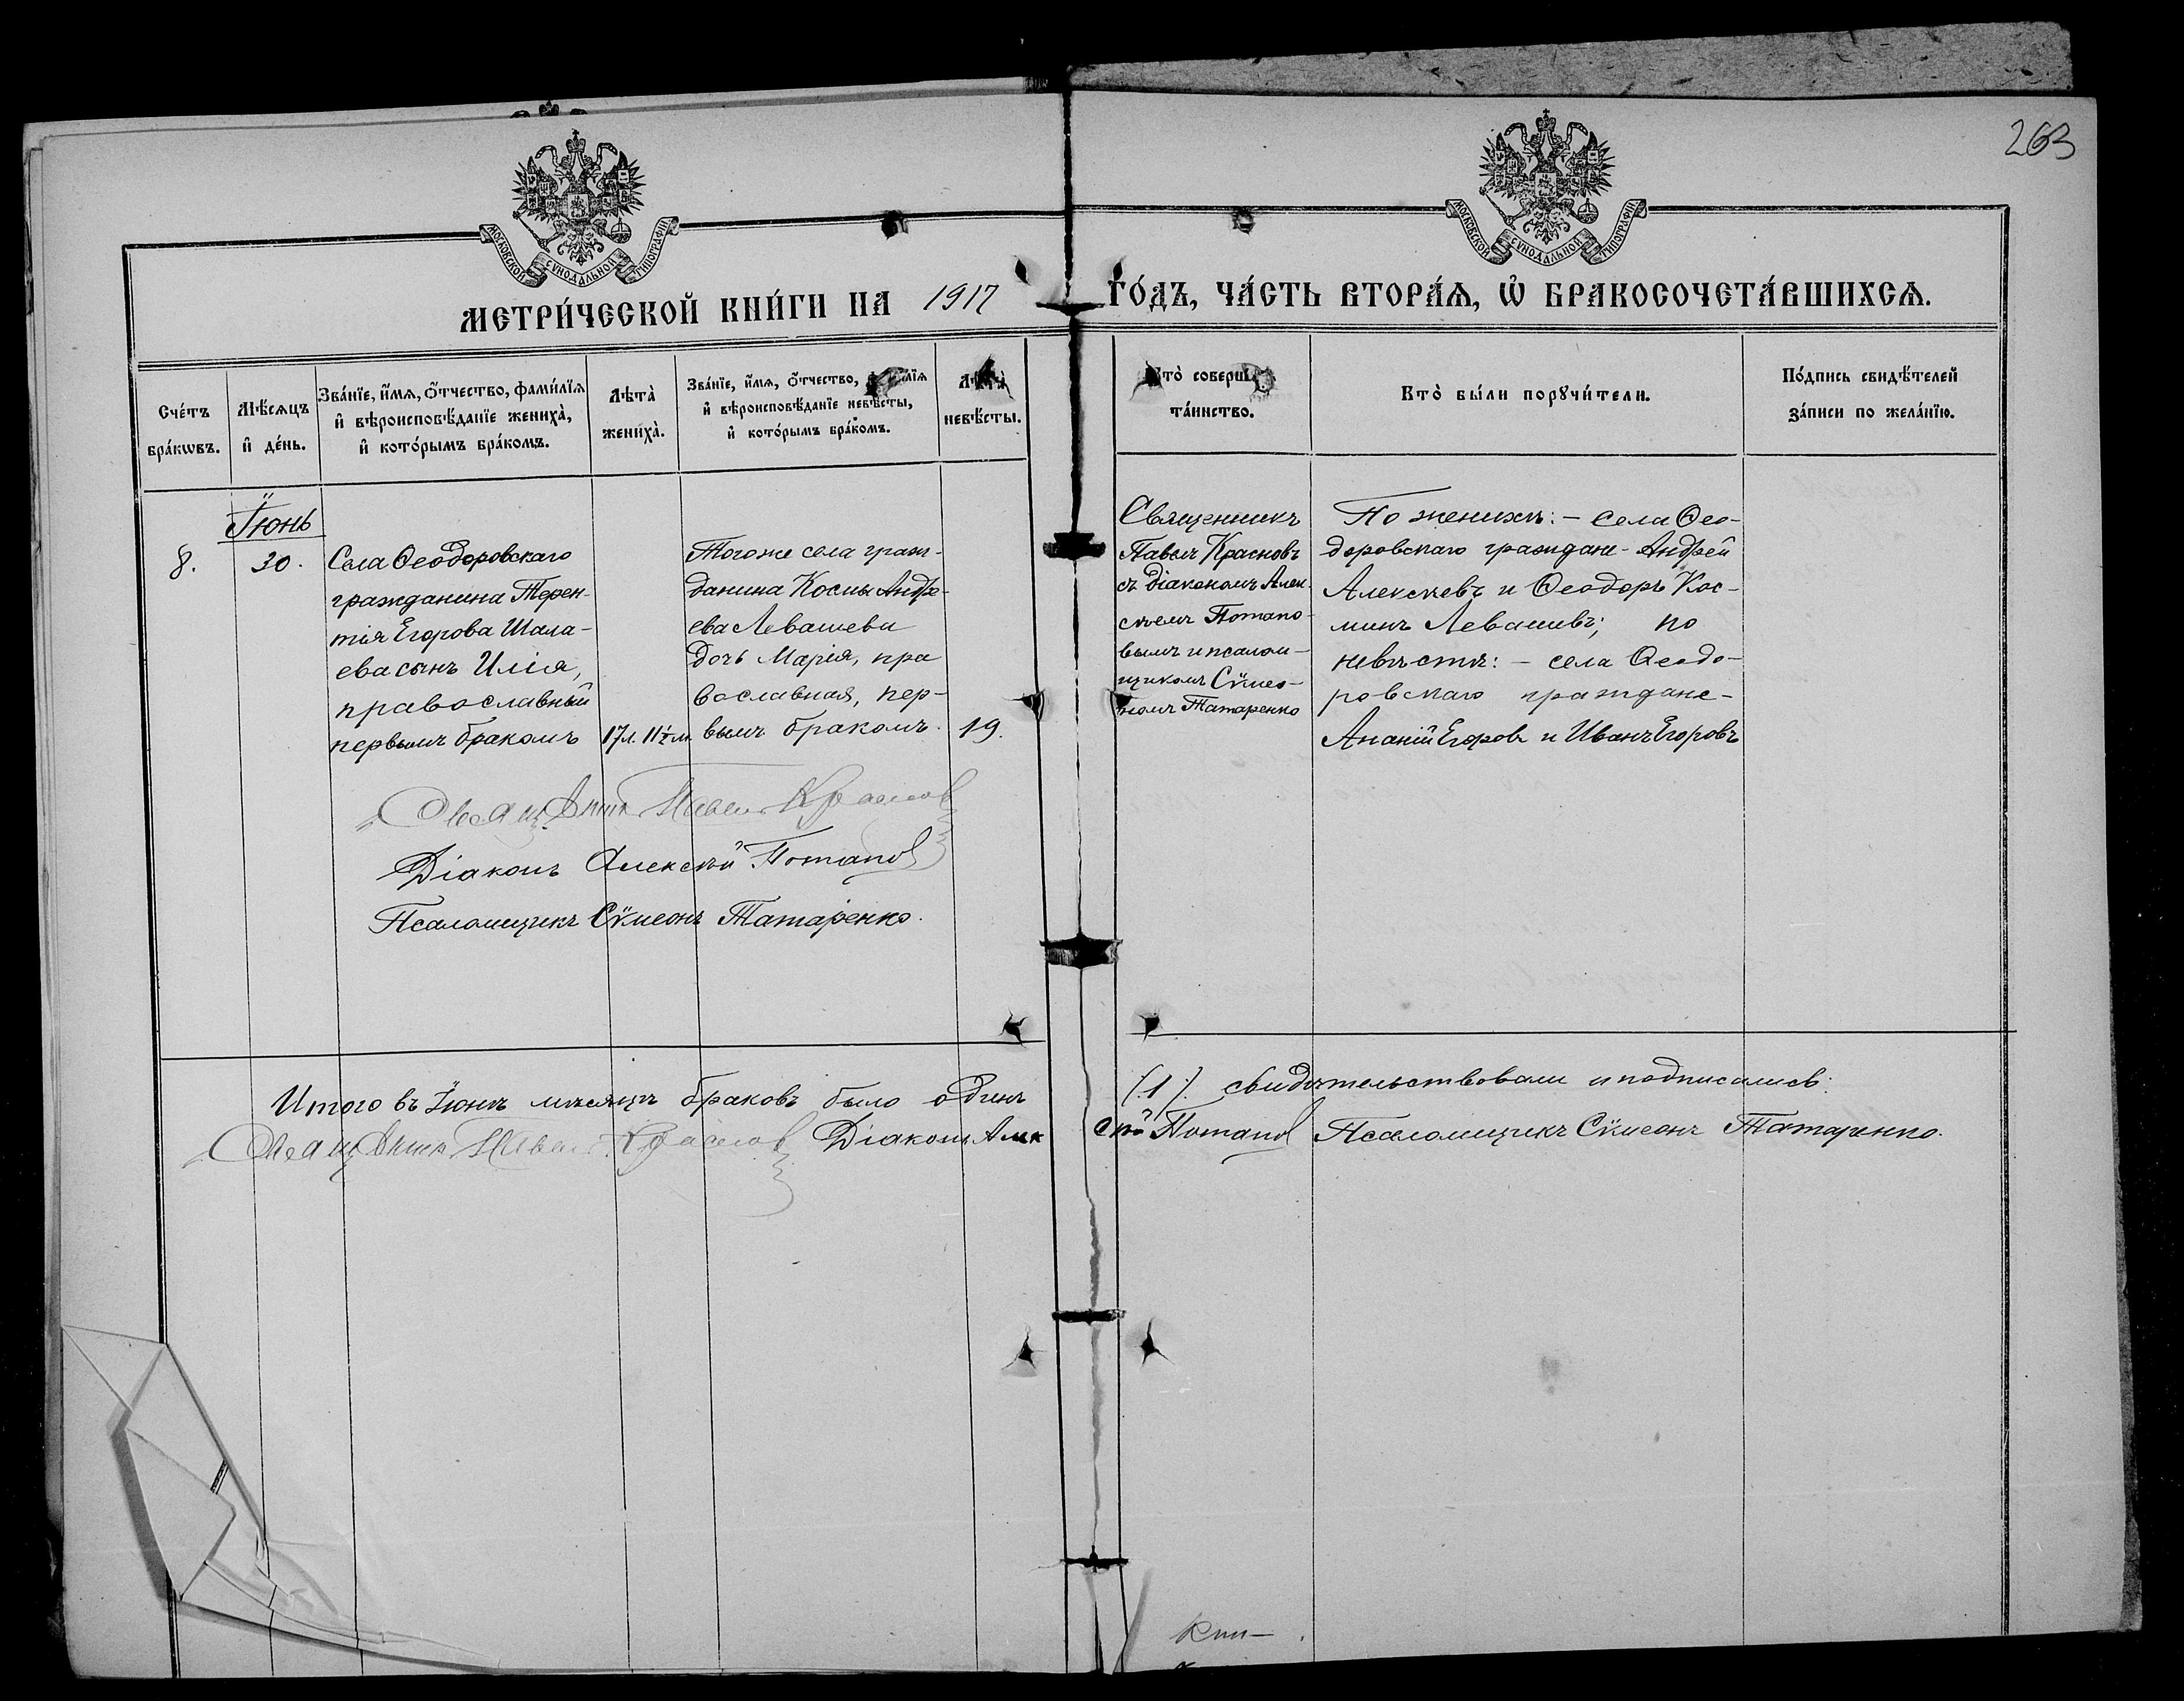 263
МОСКОВСКОЙ СѴНОДАЛЬНОЙ ТИПОГРАФІИ
МОСКОВСКОЙ СѴНОДАЛЬНОЙ ТИПОГРАФІИ
МЕТРИ́ЧЕСКОЙ КНИ́ГИ НА 1917 ГО́ДЪ, ЧА́СТЬ ВТОРА́Ѧ, Ѽ БРАКОСОЧЕТА́ВШИХСѦ.
Сче́тъ
бра́кѡвъ.
Мѣ́сѧцъ
и҆ де́нь.
Зва́нїе, и҆́мѧ, ѻ҆́тчество, фами́лїѧ
и҆ вѣроисповѣ́данїе жениха̀,
и҆ кото́рымъ бра́комъ.
Лѣта̀
жениха̀.
Зва́нїе, и҆́мѧ, ѻ҆́тчество,
и҆ вѣроисповѣ́данїе невѣ́сты,
и҆ кото́рымъ бра́комъ.
Лѣта̀
невѣ́сты.
Кто̀ соверш
та́инство.
Кто̀ бы́ли порꙋчи́тели.
По́дпись свидѣ́телей
за́писи по жела́нїю.
Іюнь
8.
30.
Села Ѳеодоровскаго
гражданина Терен-
тія Егорова Шала-
ева сынъ Илія,
православный
первымъ бракомъ
17 л. 11½ м.
Тогоже села граж-
данина Космы Андре-
ева Левашева
дочь Марія, пра
вославная, пер-
вымъ бракомъ.
19.
Священникъ
Павелъ Красновъ
съ діакономъ Алек-
сѣемъ Потапо-
вымъ и псалом-
щикомъ Сѵмео-
номъ Татаренко
По женихѣ: – села Ѳео-
доровскаго граждане – Андрей
Алексѣевъ и Ѳеодоръ Кос-
минъ Левашевъ; по
невѣстѣ: – села Ѳеодо-
ровскаго граждане –
Ананій Егоровъ и Иванъ Егоровъ
Священникъ Павелъ Краснов
Діаконъ Алексѣй Потапов
Псаломщикъ Сѵмеонъ Татаренко.
Итого въ Іюнѣ мѣсяцѣ браковъ было одинъ (1). свидѣтельствовали и подписались:
Священникъ Павелъ Краснов Діаконъ Алексѣй Потапов Псаломщикъ Сѵмеонъ Татаренко.